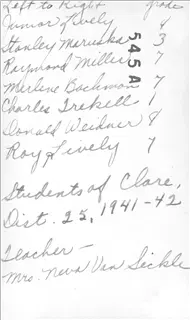 Left to Right grade
Junior Lively 8
Stanley Maruska 3
Raymond Miller 7
Merlene Bachman 7
Charles Trekell 1
Donald Weidner 8
Roy Lively 7
545A
Students of Clare,
Dist. 25, 1941-42
Teacher -
Mrs. Neva Van Sickle